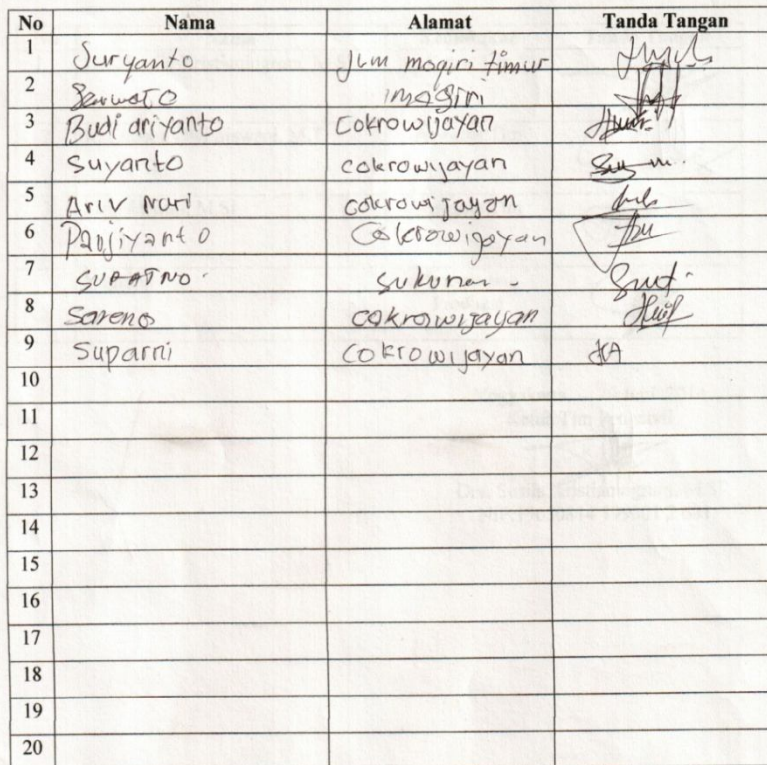 No Nama Alamat Tanda Tangan
1 Suryanto Jln mogiri timur
2 imogiri
3 Budi ariyanto Cokrowijayan
4 Suyanto cokrowijayan
5 Ariv Nuri cokrowijayan
6 Panjiyanto Cokrowijayan
7 SUPATNO.
8 Sareno cokrowijayan
9 Suparni Cokrowijayan
10
11
12
13
14
15
16
17
18
19
20